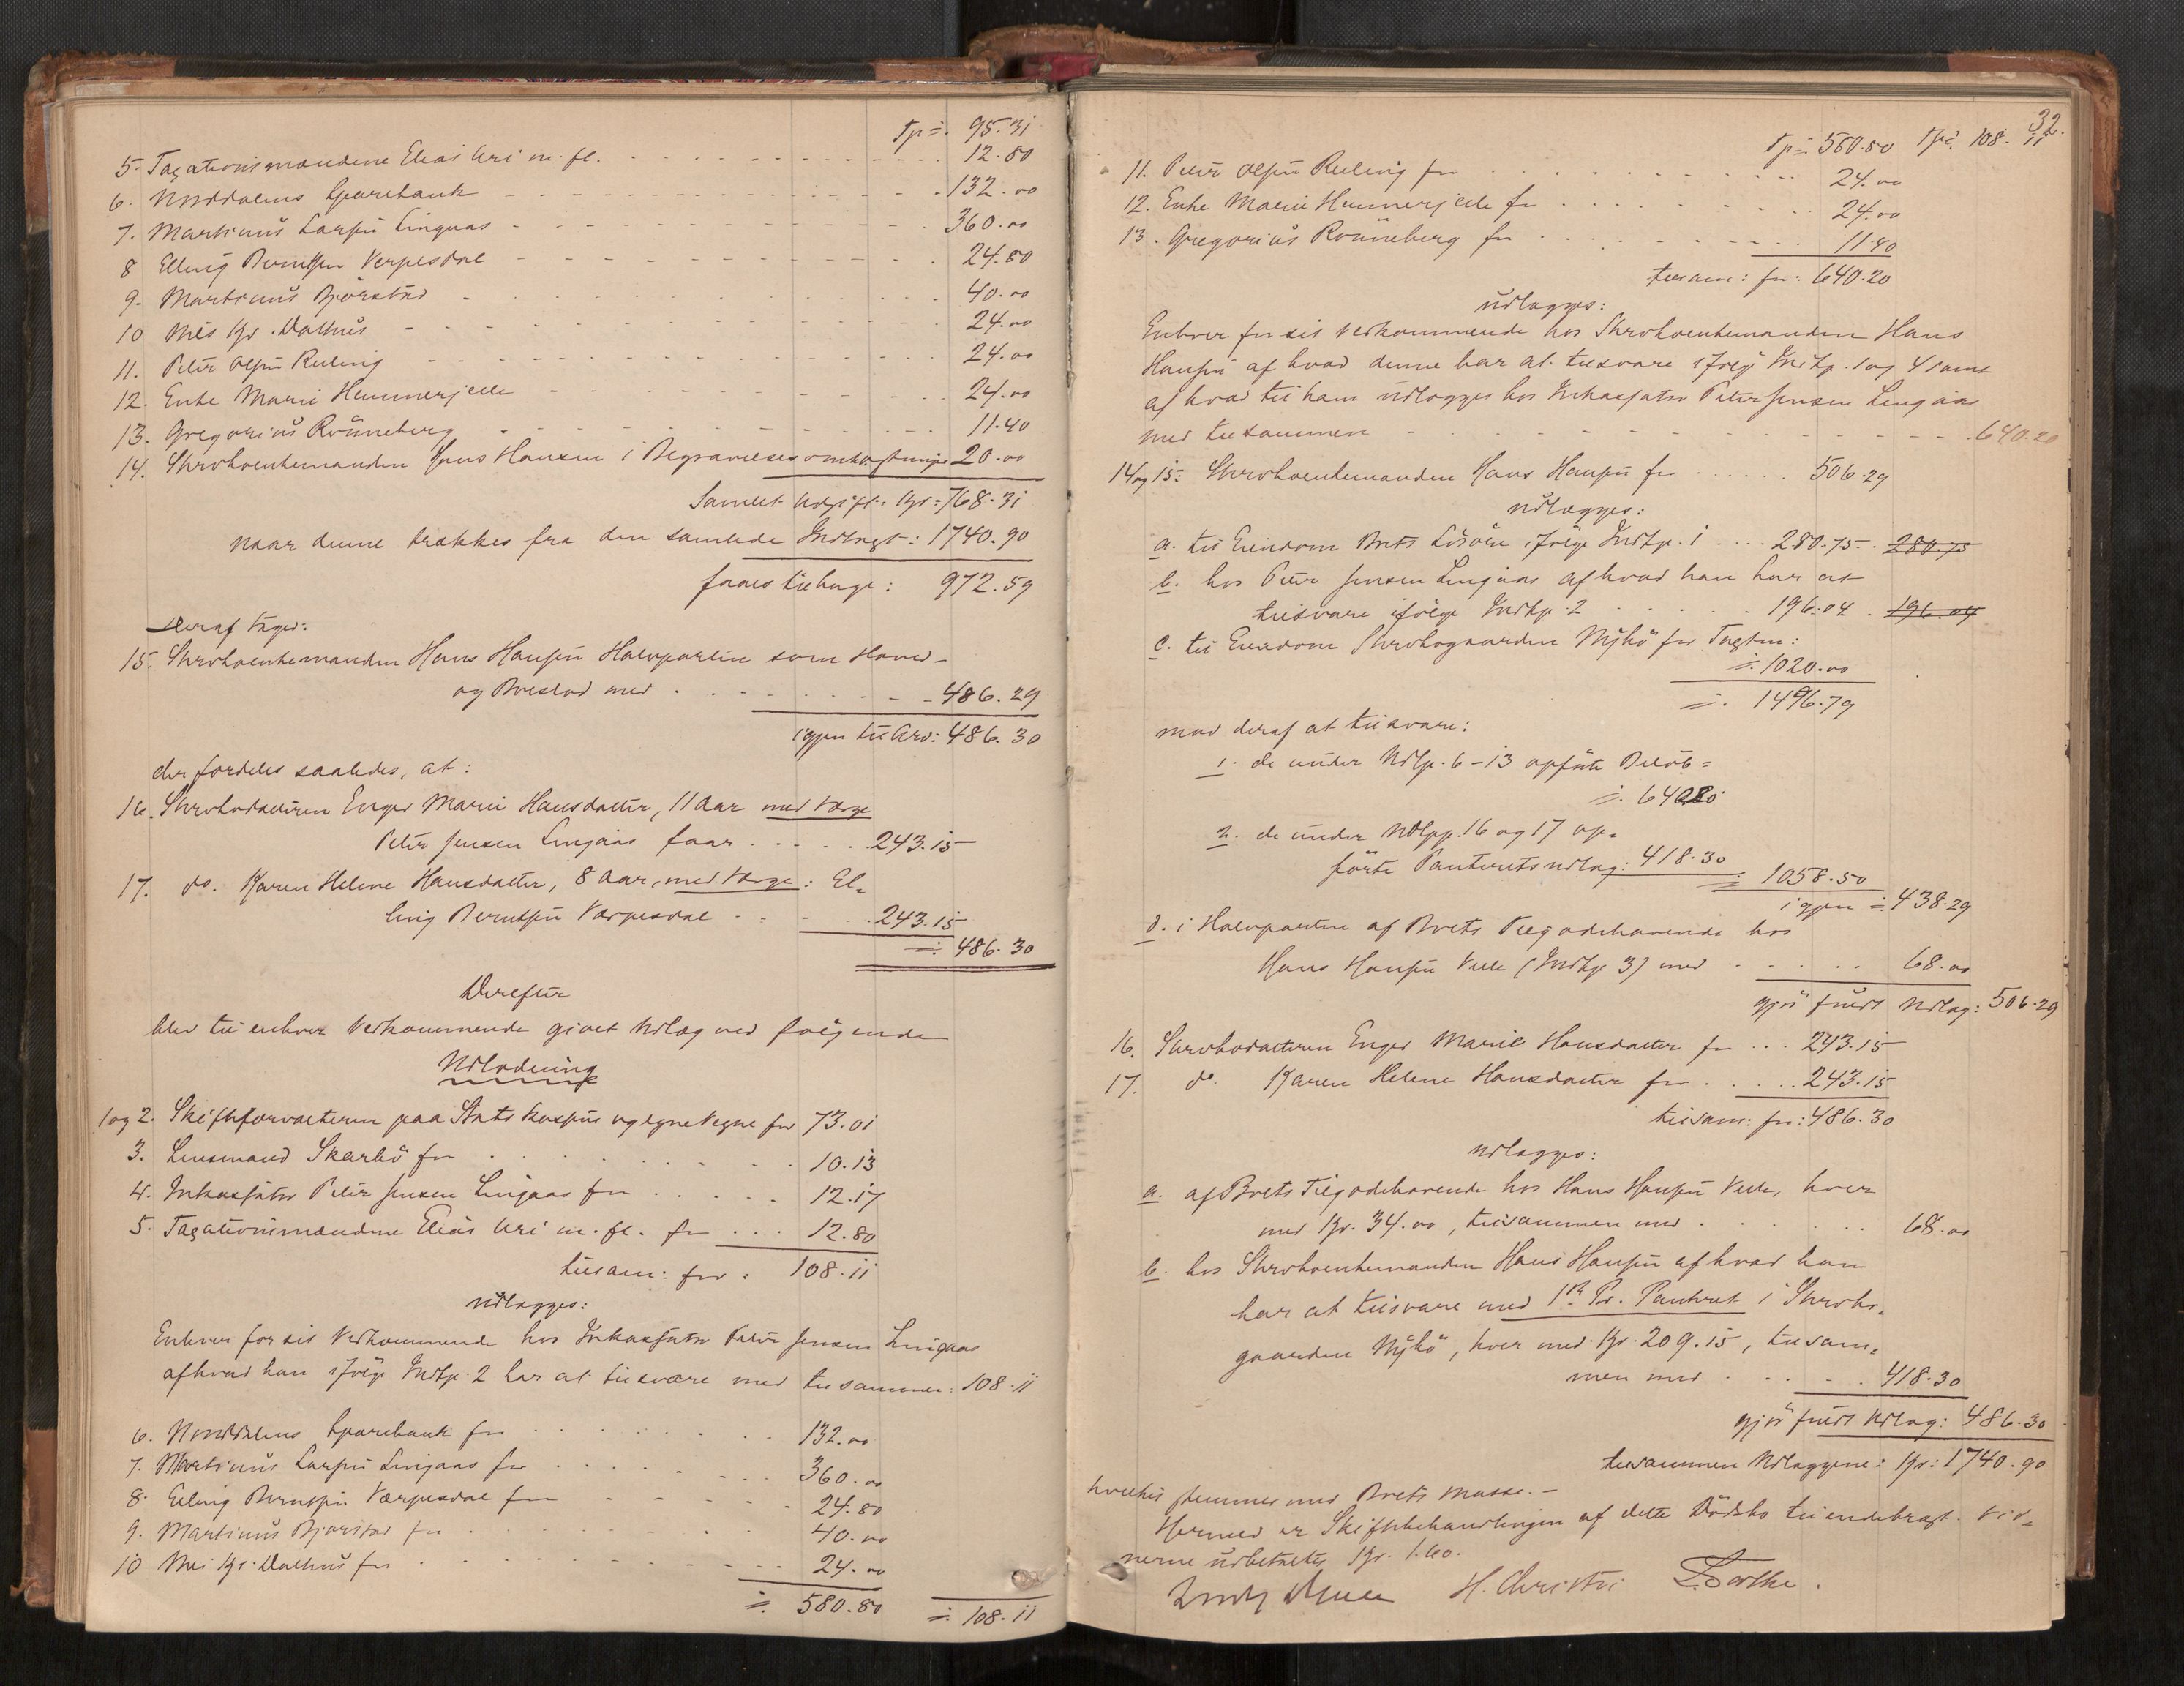 Tp ÷ 95.31
5. Taxationsmændene Elias Uri m. fl. 12.80
6. Norddalens Sparebank 132.00
7. Martinus Larsen Lingaas 360.00
8 Elling Berntsen Verpesdal 24.80
9. Martinus Bjørstad 40.00
10 Nils Kr. Dalhus 24.00
11. Peter Olsen Reling 24.00
12. Enke Marie Hemmerjelle 24.00
13. Gregorius Rönneberg 11.40
14. Skovboenkemanden Hans Hansen i Begravelsesomkostninger 20.00
Samlet Udgift: Kr: 768.31
naar denne trækkes fra den samlede Indtægt: 1740.90
faaes tilbage: 972.59
deraf tager:
15. Enkemanden Hans Hansen Halvparten som Hoved-
og Broslod med 486.29
igjen til Arv: 486.30
der fordeles saaledes, at:
16. datteren Inger Marie Hansdatter, 11 Aar med Værge
Peter Jensen Lingaas faar 243.15
17. do. Karen Helene Hansdatter, 8 Aar, med Værge: El-
ling Berntsen Værpesdal 243.15
÷ 486.30
Derefter
blev til enhver Vedkommende givet Udlæg ved følgende
Udlodning
1 og 2. Skifteforvalteren paa Statskassens og egne Vegne for 73.01
3. Lensmand Skarbö for 10.13
4. Inkassator Peter Jensen Lingaas for 12.17
5. Taxationsmændene Elias Uri m. fl. for 12.80
tilsam: for: 108.11
udlægges:
Enhver for sit Vedkommende hos Inkassator Peter Jensen Lingaas
af hvad han ifølge Indtp. 2 har at tilsvare med tilsammen: 108.11
6. Norddalens Sparebank for 132.00
7. Martinus Larsen Lingaas for 360.00
8. Elling Berntsen Værpesdal for 24.80
9. Martinus Bjørstad for 40.00
10 Nils Kr. Dalhus for 24.00
÷ 580.80 ÷ 108.11
32.
Tp ÷ 580.80 Tp ÷ 108.11
11. Peter Olsen Reling for 24.00
12. Enke Marie Hemmerjelle for 24.00
13. Gregorius Rönneberg for 11.40
tilsam: for: 640.20
udlægges:
Enhver for sit Vedkommende hos enkemanden Hans
Hansen af hvad denne har at tilsvare ifølge Indtp. 1 og 4 samt
af hvad til ham udlægges hos Inkassator Peter Jensen Lingaas
med tilsammen 640.20
14 og 15: enkemanden Hans Hansen for 506.29
udlægges:
a. til Eiendom Boets Lösöre ifølge Indtp. 1 280.75 280.75
b. hos Peter Jensen Lingaas af hvad han har at
tilsvare ifølge Indtp. 2 196.04 196.04
c. til Eiendom gaarden Nybö for Taxten:
÷ 1020.00
÷ 1496.79
mod deraf at tilsvare:
1. de under Udtp. 6-13 opførte Belöb =
÷ 640.20
2. de under Udtpp. 16 og 17 op-
førte Panteretsudlæg: 418.30 ÷ 1058.50
igjen ÷ 438.29
d. i Halvparten af Boets Tilgodehavende hos
Hans Hansen Velle (Indtp 3) med 68.00
gjør fuldt Udlæg: 506.29
16. datteren Inger Marie Hansdatter for 243.15
17. do. Karen Helene Hansdatter for 243.15
tilsam: for: 486.30
udlægges:
a. af Boets Tilgodehavende hos Hans Hansen Velle, hver
med Kr. 34.00, tilsammen med 68.00
b. hos enkemanden Hans Hansen af hvad han
har at tilsvare med 1ste Pr. Panteret i
gaarden Nybö, hver med Kr. 209.15, tilsam-
men med 418.30
gjør fuldt Udlæg: 486.30
tilsammen Udlæggene: Kr: 1740.90
hvilket stemmer med Boets Masse. -
Hermed er Skiftebehandlingen af dette Dödsbo tilendebragt. Vid-
nerne udbetaltes Kr. 1.60.
H. Christie